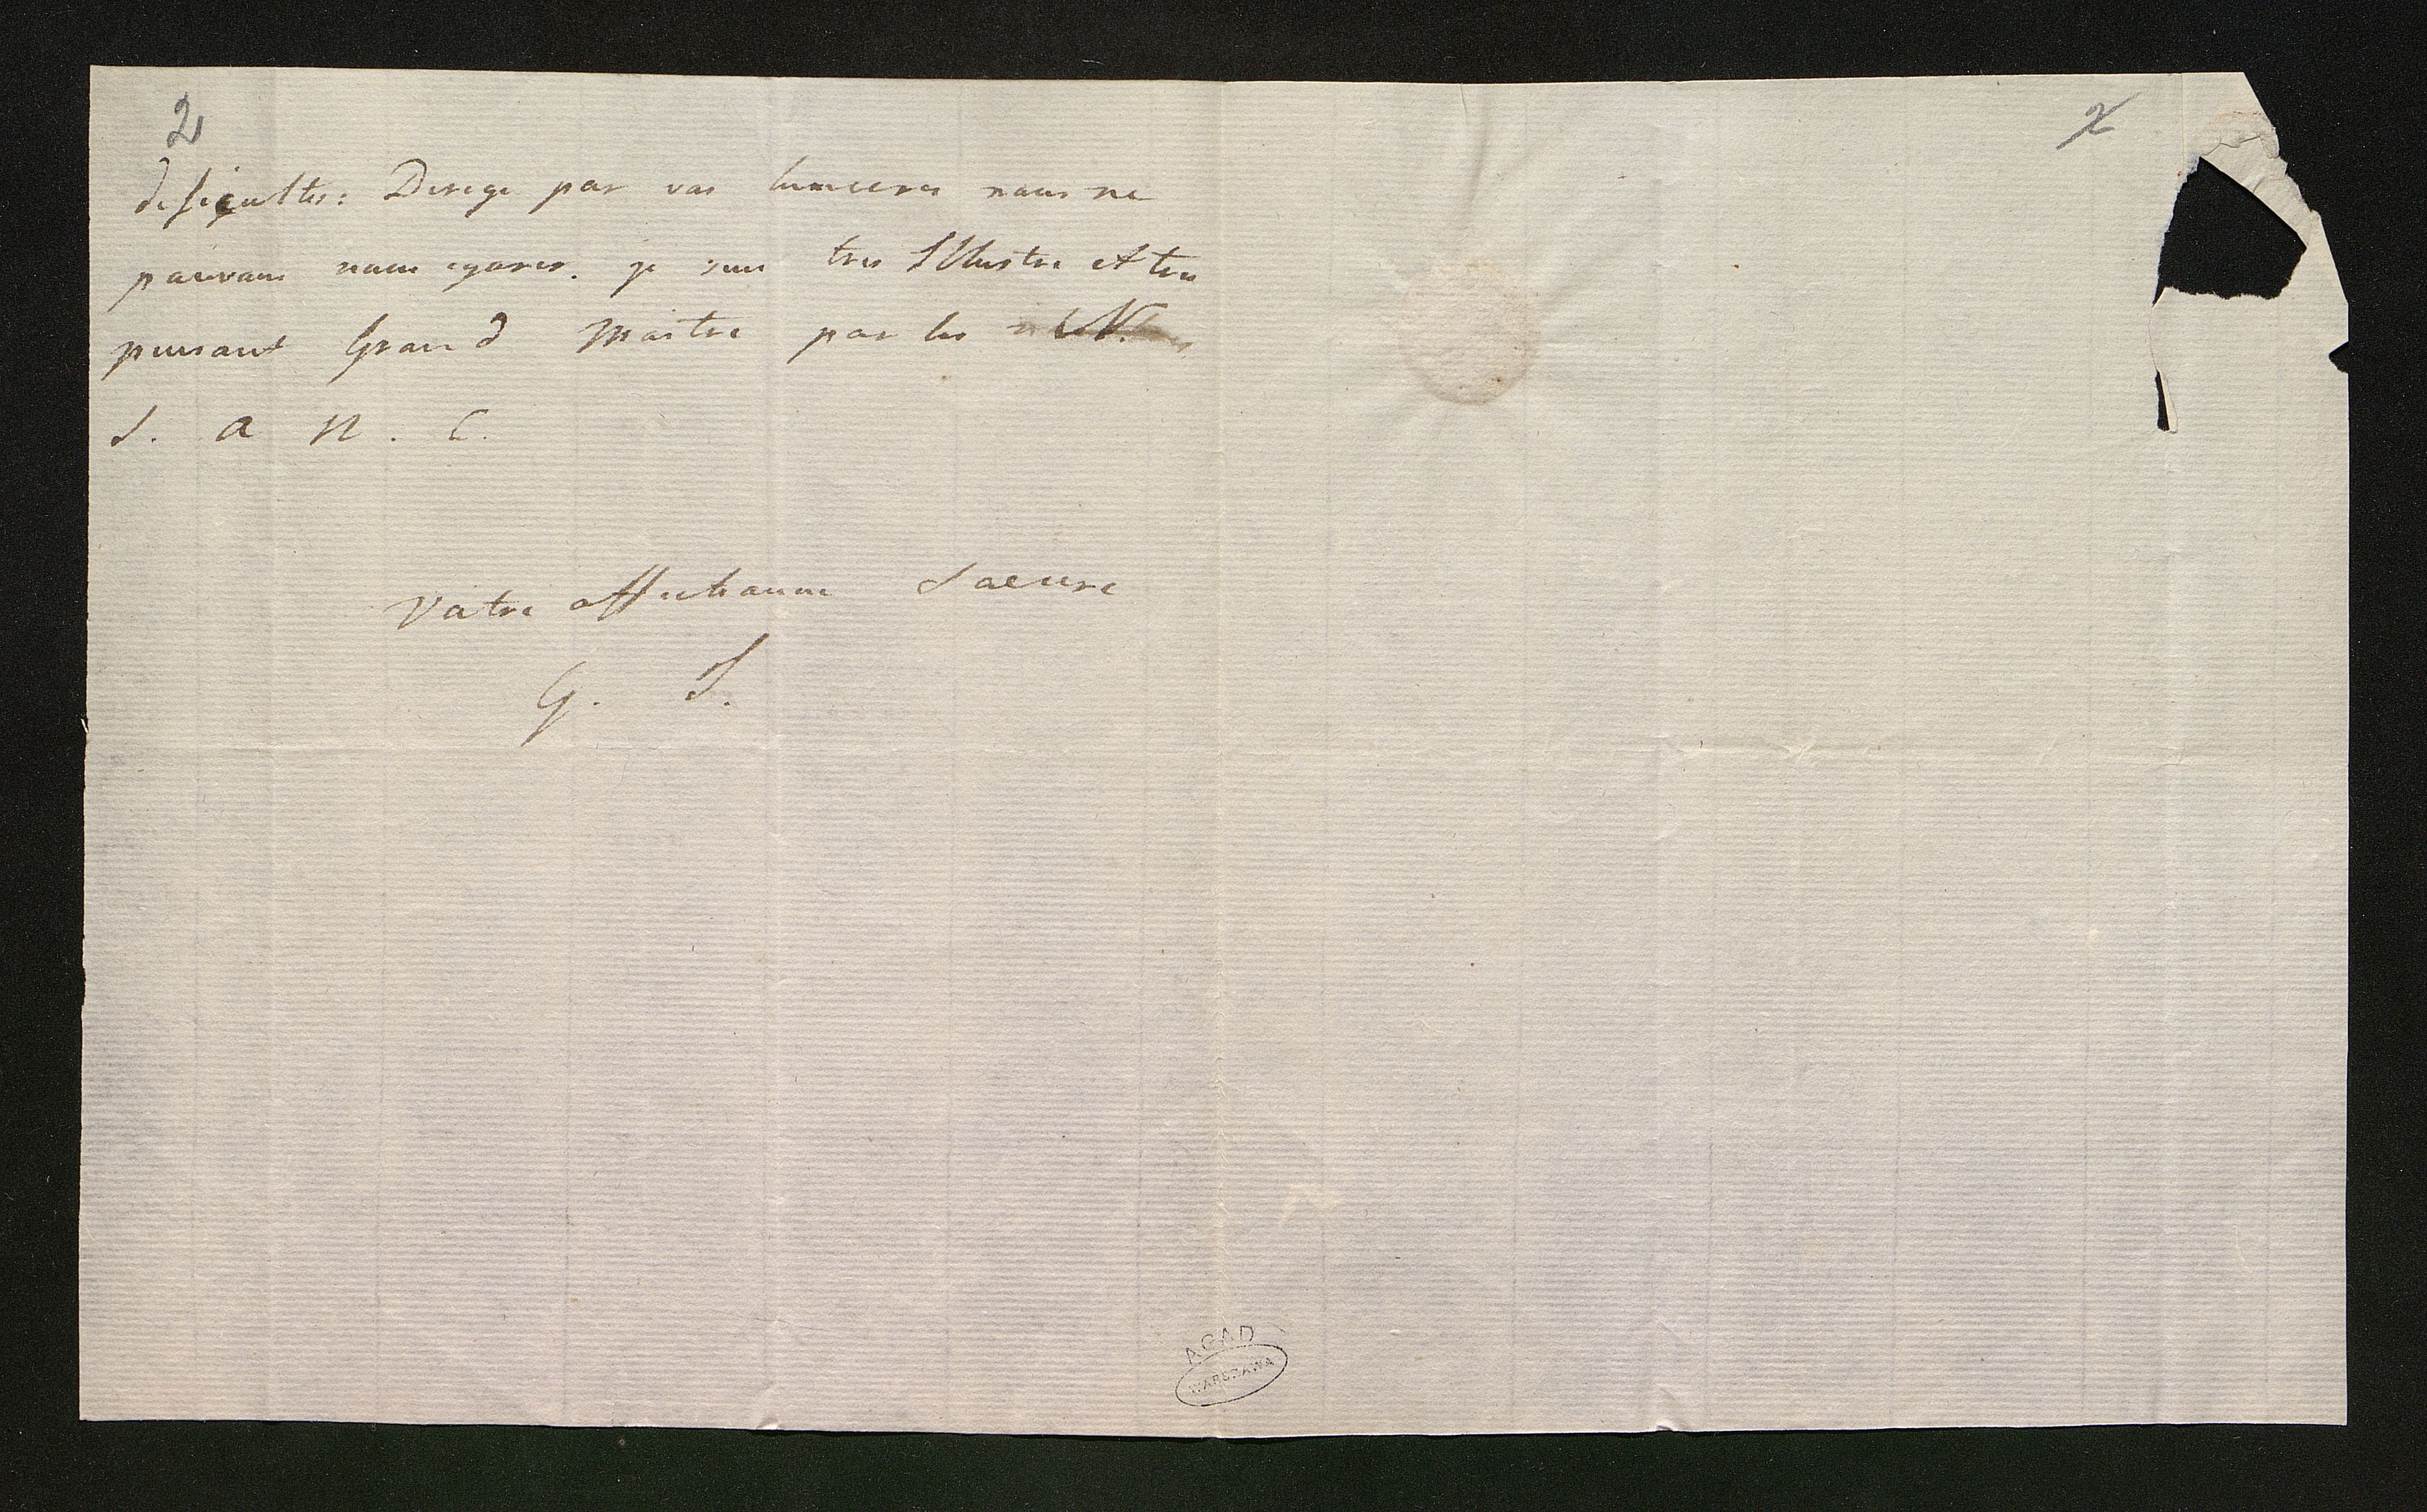 2
dificultes: Dirige par vos lumieres nous ne
pouvons nous egarer. je suis tres Illustre et tres
puissant Grand Maitre par les N.
S. a N. C.
Votre affectionne Soeure
G. S.
2
AGAD
WARSZAWA